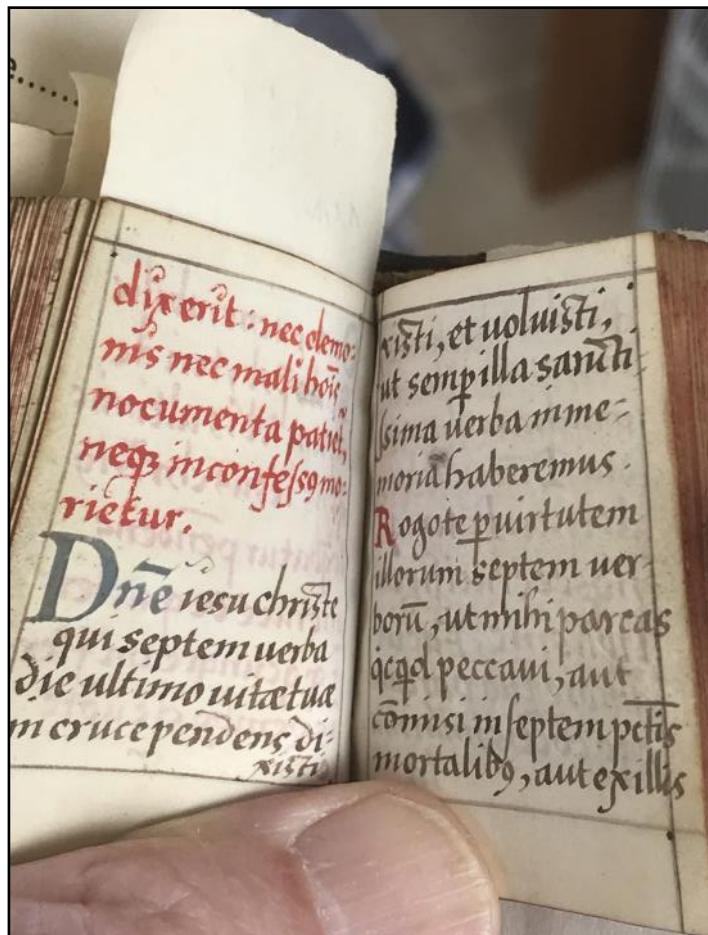 e......
dixerit: nec demo-
nis nec mali hoĩs
nocumenta patiet̃,
neqꝫ inconfessꝯ mo-
rietur.
Dñe iesu christe
qui septem uerba
die ultimo uitæ tuæ
in cruce pendens di-
xisti
xisti, et uoluisti,
ut semꝑ illa sancti-
ssima uerba in me-
moria haberemus.
Rogo te ꝑ uirtutem
illorum septem uer-
borũ, ut mihi parcas
qcqd peccaui, aut
cõmisi in septem pctis̃
mortalibꝯ, aut ex illis